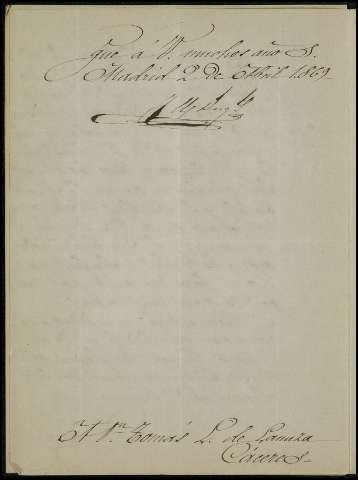 gue á V. muchos años.
Madrid 2 de Abril 1869
Sr. Dn. Tomás L. de Lanuza
Cáceres